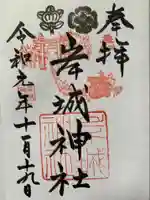 奉拝
岸城神社
令和元年十月十九日